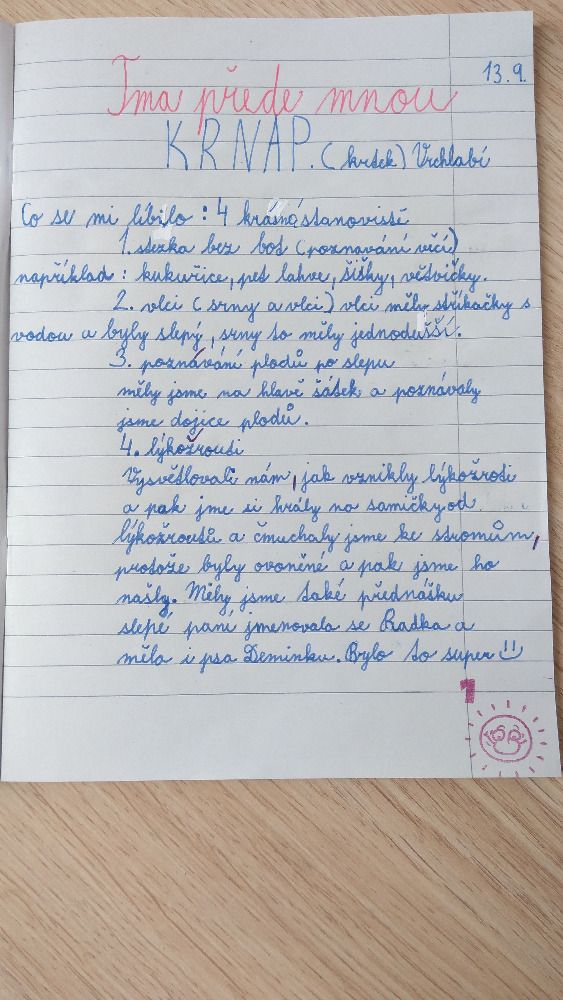 13.9.
Tma přede mnou
KRNAP. (krtek) Vrchlabí
Co se mi líbilo : 4 krásná stanovistě
1. stezka bez bot (poznavání věcí)
například : kukuřice, pet lahve, šišky, větvičky.
2. vlci (srny a vlci) vlci měly stříkačky s
vodou a byly slepý, srny to měly jednodušší.
3. poznávání plodů po slepu
měly jsme na hlavě šátek a poznávaly
jsme dojice plodů.
4. lýkožrouti
Vysvětlovali nám, jak vznikly lýkožroti
a pak jme si hrály na samičky od
lýkožroutů a čmuchaly jsme ke stromům,
protože byly ovoněné a pak jsme ho
našly. Měly jsme také přednášku
slepé paní jmenovala se Radka a
měla i psa Deminku. Bylo to super
1